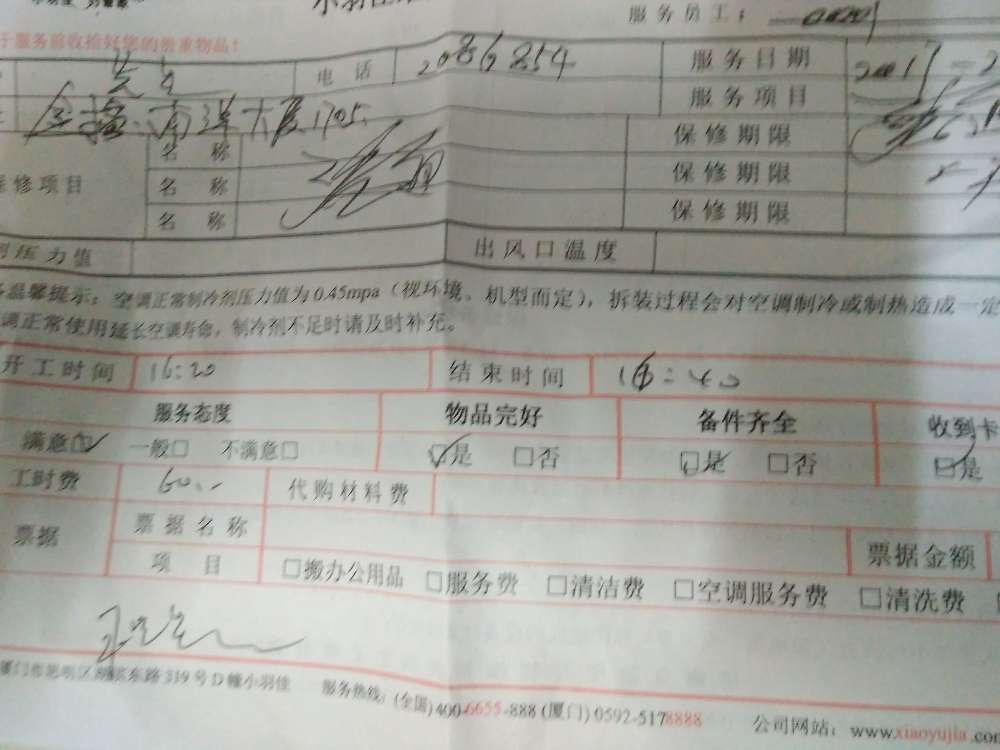 服务员工：
于服务前收拾好您的贵重物品！
电话 2086854 服务日期 2017
服务项目
南洋大厦1705
名称 保修期限
保修项目 名称 保修期限
名称 保修期限
剂压力值 出风口温度
温馨提示：空调正常制冷剂压力值为0.45mpa（视环境、机型而定），拆装过程会对空调制冷或制热造成一定
调正常使用延长空调寿命，制冷剂不足时请及时补充。
开工时间 16:20 结束时间 16:40
服务态度 物品完好 备件齐全 收到卡
满意☑ 一般□ 不满意□ ☑是 □否 ☑是 □否 ☑是
工时费 60.- 代购材料费
票据 票据名称 票据金额
项目 □搬办公用品 □服务费 □清洁费 □空调服务费 □清洗费
厦门市思明区湖滨东路319号D幢小羽佳 服务热线：(全国)400-6655-888 (厦门)0592-5178888 公司网站：www.xiaoyujia.com